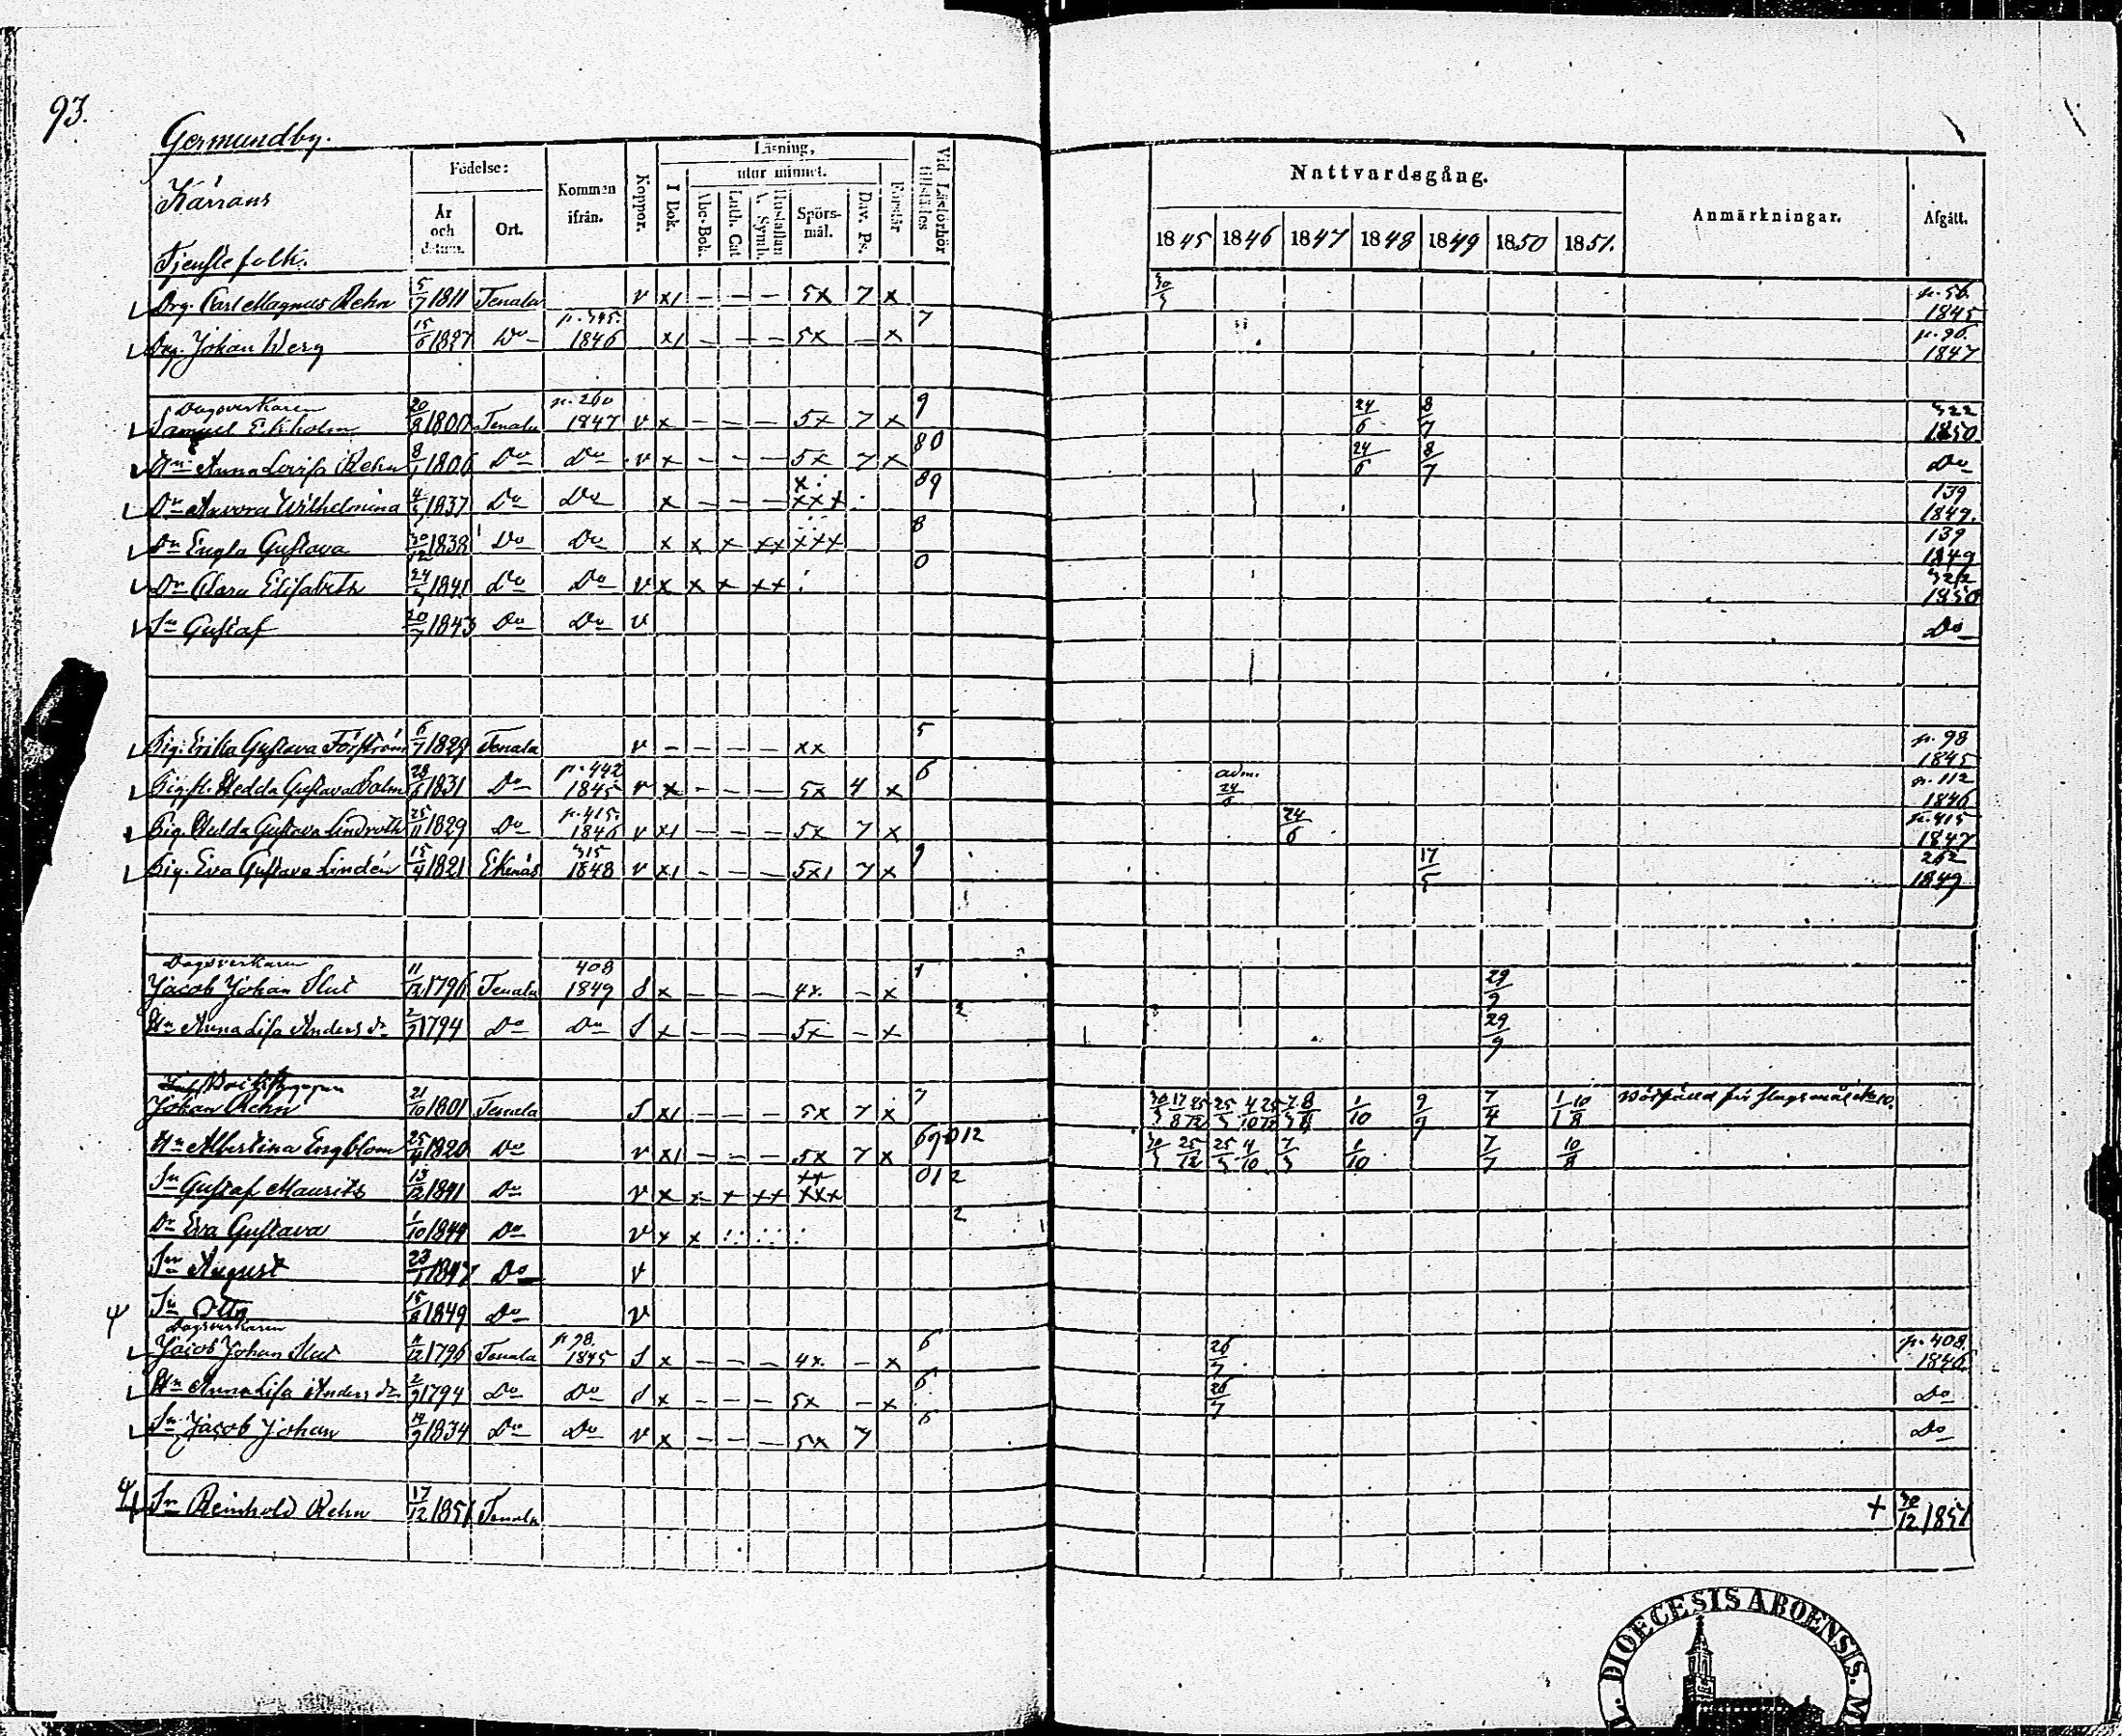 93.
Germundby.
Kårrans
Tjenstefolk.
Födelse:
År och datum.
Ort.
Kommen ifrån.
Koppor.
Läsning,
I Bok.
utur minnet.
Abc-Bok.
Luth. Cat
Hustaflan A. Symb.
Spörsmål.
Dav. Ps.
Förstår
Vid Läsförhör tillstädes
Nattvardsgång.
1845 1846 1847 1848 1849 1850 1851.
Anmärkningar.
Afgått.
Drg. Carl Magnus Rehn 5/7 1811 Tenala v x1 – – – 5x 7 x 30/3 p. 56. 1845
Drg. Johan Werg 15/6 1827 Do p. 345. 1846 x1 – – – 5x – x 7 p. 96. 1847
Dagsverkaren
Samuel Ekholm 20/8 1800 Tenala p. 260 1847 v x – – – 5x 7 x 9 24/6 8/7 322 1850
Hu Anna Lovisa Rehn 8/1 1806 Do Do v x – – – 5x 7 x 80 24/6 8/7 Do
Dr Aurora Wilhelmina 1837 Do Do x – – – xxx 89 139 1849.
Dr Engla Gustava 30/12 1838 Do Do x x x xx xxx 8 139 1849
Dr Clara Elisabeth 1841 Do Do v x x x xx 0 322 1850
Sn Gustaf 20/7 1843 Do Do v Do
Pig. Erika Gustava Forström 6/7 1829 Tenala v – – – – xx 5 p. 98 1845
Pig. fl. Hedda Gustava Holm 28/6 1831 Do p. 442 1845 v x – – – 5x 4 x 6 adm. 24/6 p. 112 1846
Pig. Hedda Gustava Lindroth 25/11 1829 Do p. 415. 1846 v x1 – – – 5x 7 x 24/6 p. 415 1847
Pig. Eva Gustava Lindén 15/4 1821 Ekenäs 315 1848 v x1 – – – 5x1 7 x 9 17/5 262 1849
Dagsverkaren
Jacob Johan Slut 11/12 1796 Tenala 408 1849 S x – – – 4x. – x 1 29/9
Hu Anna Lisa Anders dr 2/9 1794 Do Do S x – – – 5x – x 2 29/9
Johan Rehn 21/10 1801 Tenala S x1 – – – 5x 7 x 7 1/10 9/9 7/4 1/1 10/8
Hu Albertina Engblom 25/4 1820 Do v x1 – – – 5x 7 x 69012 30/3 25/12 25/3 4/10 7/3 1/10 7/7 10/8
Sn Gustaf Maurits 13/12 1841 Do v x x x xx xxx 012
Dr Eva Gustava 1/10 1844 Do v x x 2
Sn August 23/1 1847 Do v
Sn Otto 15/8 1849 Do v
Dagsverkaren
Jacob Johan Slut 11/12 1796 Tenala p 98. 1845 S x – – – 4x. – x 6 26/7 p. 408. 1846
Hu Anna Lisa Anders dr 2/9 1794 Do Do S x – – – 5x – x 6 26/7 Do
Sn Jacob Johan 19/9 1834 Do Do v x – – – 5x 7 6 Do
Sn Reinhold Rehn 17/12 1851 Tenala + 30/12 1851
DIOECESIS ABOENSIS. M